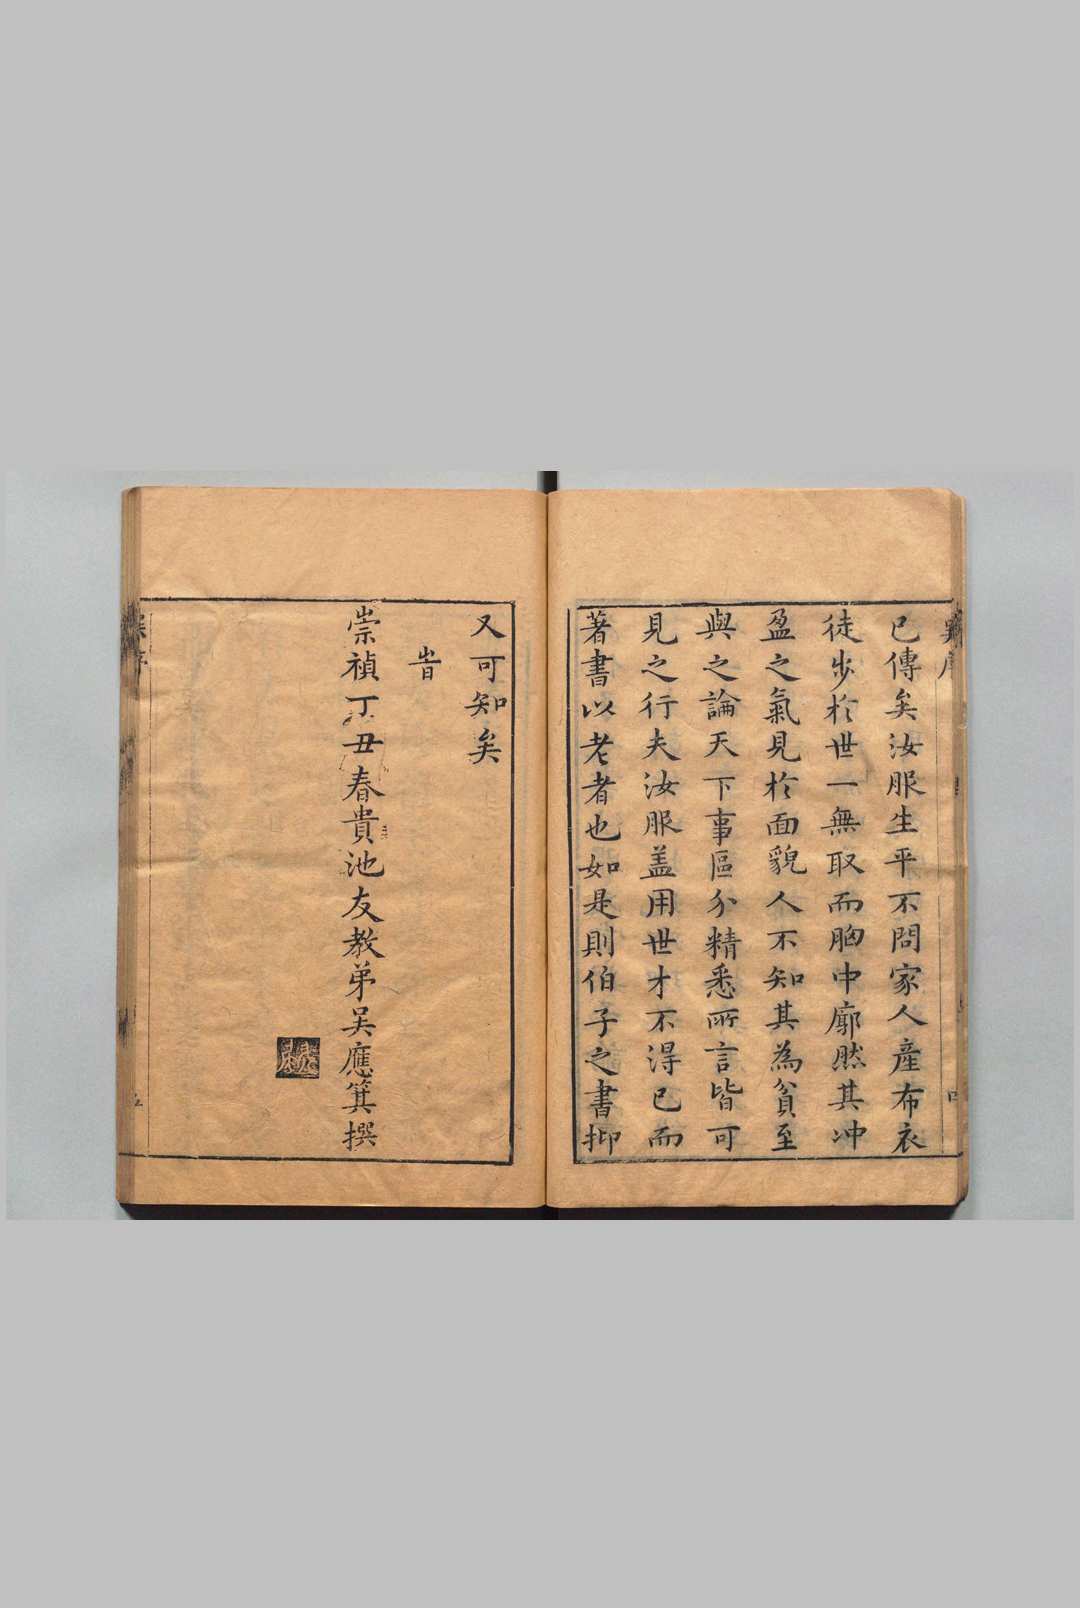 已傳矣汝服生平不問家人產布衣
徒步於世一無取而胸中廓然其沖
盈之氣見於面貌人不知其為貧至
與之論天下事區分精悉所言皆可
見之行夫汝服盖用世才不得已而
著書以老者也如是則伯子之書抑
又可知矣
旹
崇禎丁丑春貴池友教弟吳應箕撰